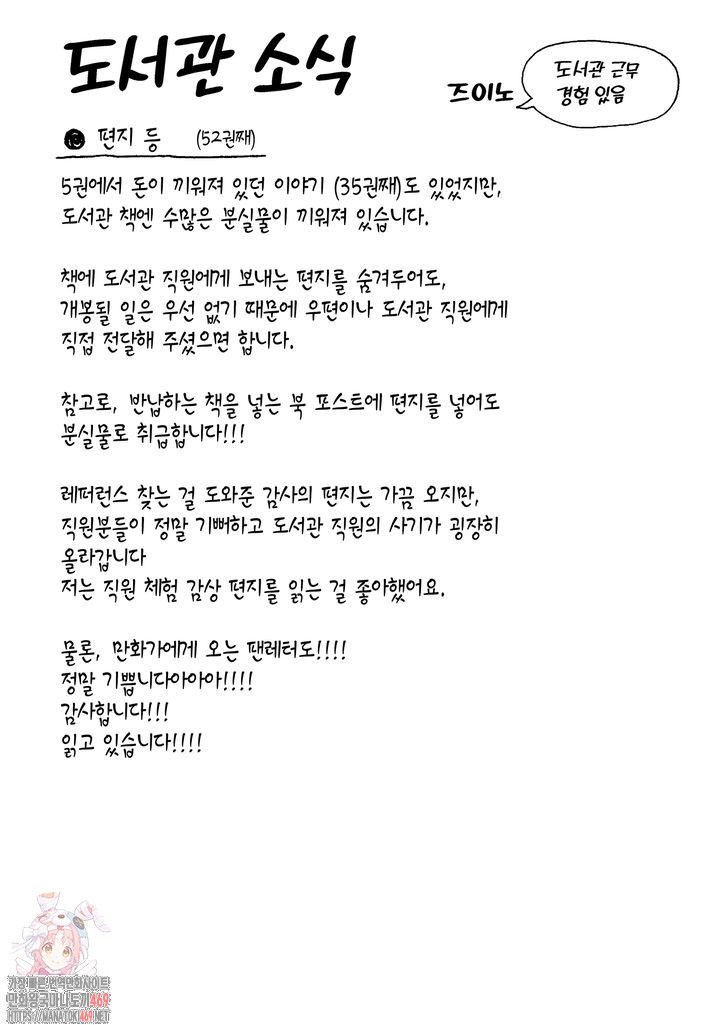 도서관 소식
즈이노
도서관 근무
경험 있음
편지 등 (52권째)
5권에서 돈이 끼워져 있던 이야기 (35권째)도 있었지만,
도서관 책엔 수많은 분실물이 끼워져 있습니다.
책에 도서관 직원에게 보내는 편지를 숨겨두어도,
개봉될 일은 우선 없기 때문에 우편이나 도서관 직원에게
직접 전달해 주셨으면 합니다.
참고로, 반납하는 책을 넣는 북 포스트에 편지를 넣어도
분실물로 취급합니다!!!
레퍼런스 찾는 걸 도와준 감사의 편지는 가끔 오지만,
직원분들이 정말 기뻐하고 도서관 직원의 사기가 굉장히
올라갑니다
저는 직원 체험 감상 편지를 읽는 걸 좋아했어요.
물론, 만화가에게 오는 팬레터도!!!!
정말 기쁩니다아아아!!!!
감사합니다!!!
읽고 있습니다!!!!
가장 빠른 번역만화사이트
만화왕국마나토끼469
HTTPS://MANATOKI469.NET